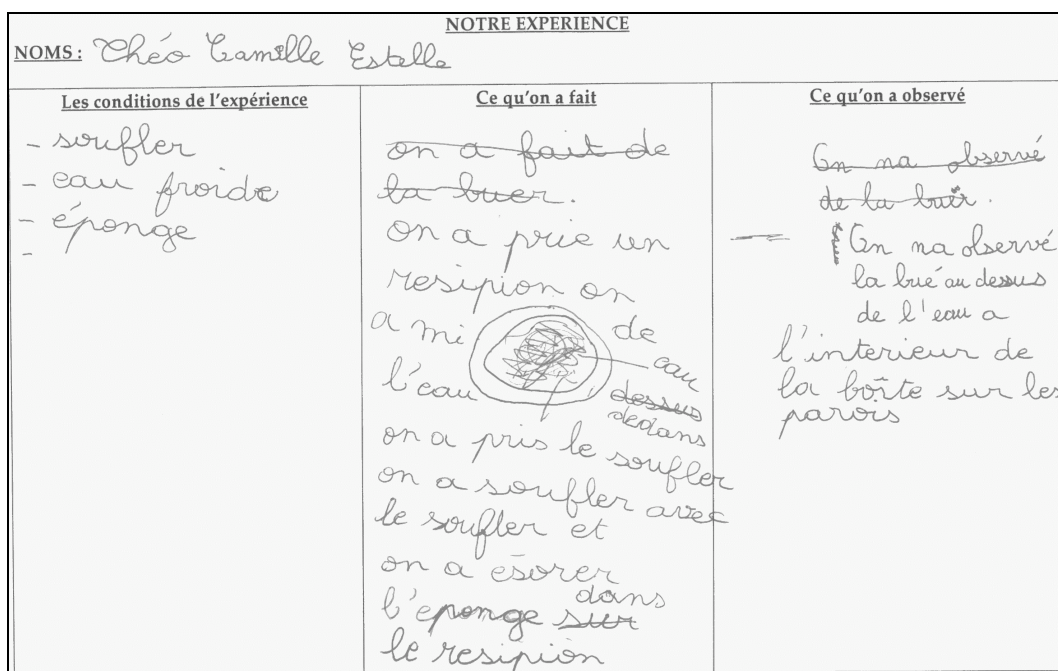 NOTRE EXPERIENCE
NOMS : Théo Camille Estelle
Les conditions de l'expérience
- soufler
- eau froide
- éponge
-
Ce qu'on a fait
on a fait de
la buer.
on a prie un
resipion on
a mi de
l'eau
eau
dessus
dedans
on a pris le soufler
on a soufler avec
le soufler et
on a ésorer
dans
l'eponge sur
le resipion
Ce qu'on a observé
On na observé
de la buër.
On na observé
la brié au dessus
de l'eau a
l'interieur de
la boîte sur les
parois